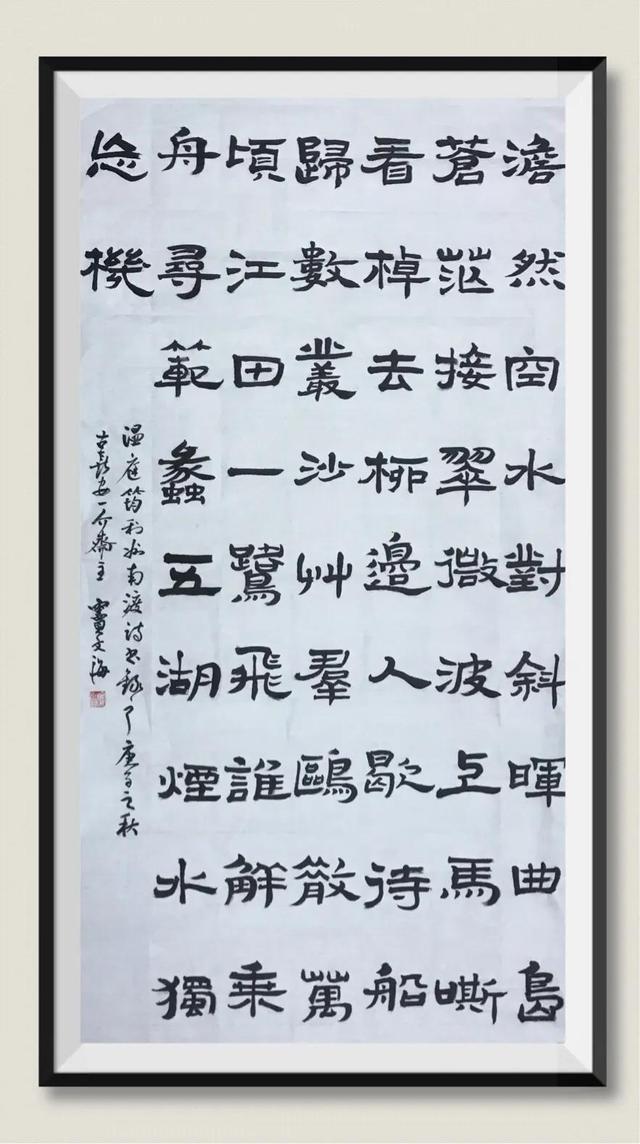 澹然空水對斜暉曲島
蒼茫接翠微波上馬嘶
看棹去柳邊人歇待船
歸數叢沙艸羣鷗散萬
頃江田一鷺飛誰解乘
舟尋範蠡五湖煙水獨
忘機
温庭筠利州南渡诗书録于庚子之秋
古長安一介齋主 竇文海